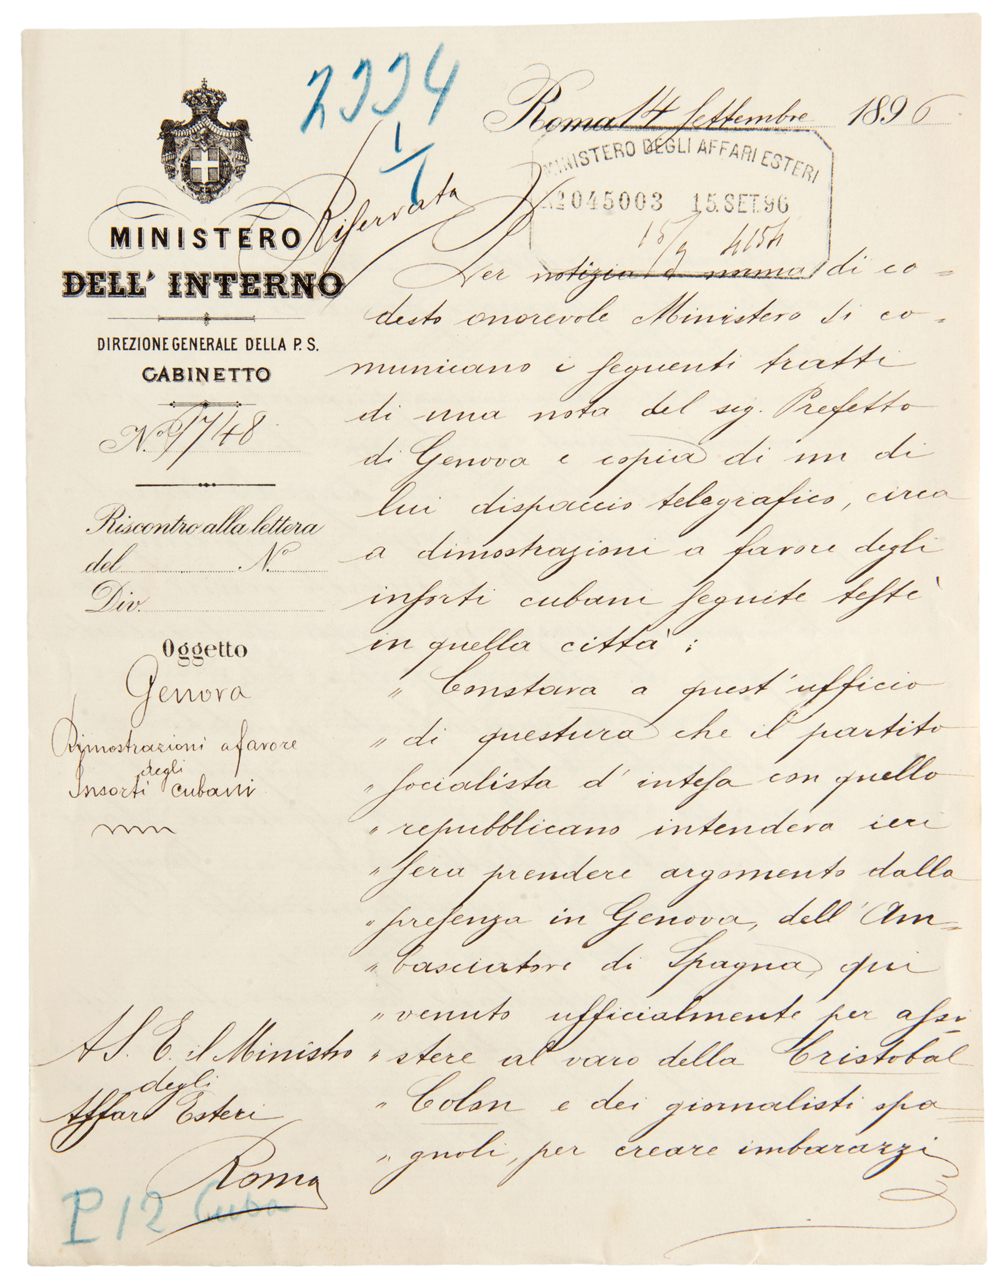 2334
1/1
Roma 14 Settembre 1896
MINISTERO DEGLI AFFARI ESTERI
No 045003 15.SET.96
15/9
Riservata
MINISTERO
DELL' INTERNO
DIREZIONE GENERALE DELLA P. S.
GABINETTO
N.o 9748
Riscontro alla lettera
del N.o
Div.
Oggetto
Genova
Dimostrazioni a favore
degli
Insorti cubani
A S. E. il Ministro
degli
Affari Esteri
Roma
P 12 Cuba
Per notizia e norma di co-
desto onorevole Ministero si co-
municano i seguenti tratti
di una nota del sig. Prefetto
di Genova e copia di un di
lui dispaccio telegrafico, circa
a dimostrazioni a favore degli
insorti cubani seguite testè
in quella città:
" Constava a quest'ufficio
" di questura che il partito
" socialista d'intesa con quello
" repubblicano intendeva ieri
" sera prendere argomento dalla
" presenza in Genova, dell'Am-
" basciatore di Spagna, qui
" venuto ufficialmente per assi
" stere al varo della Cristobal
" Colon e dei giornalisti spa
" gnoli, per creare imbarazzi